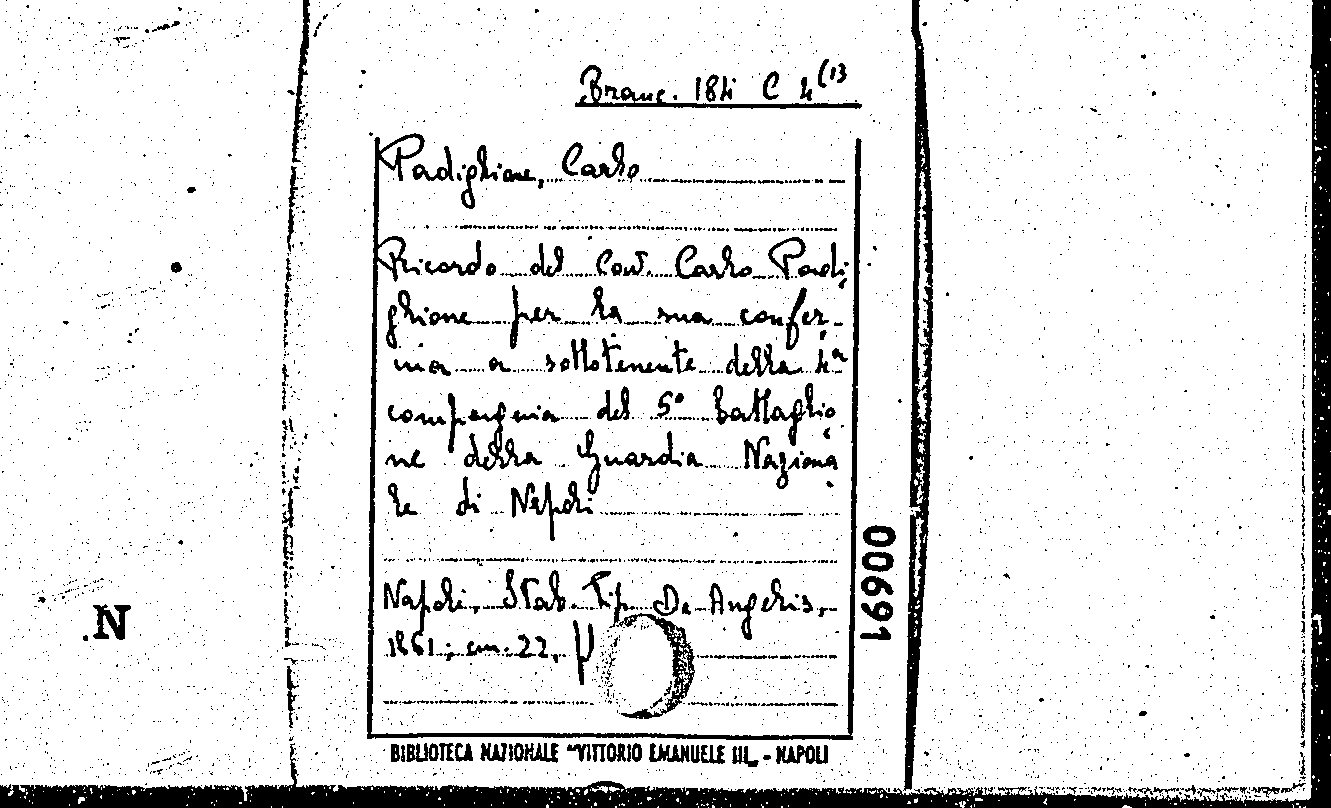 Branc. 184 C 4(13
Padiglione, Carlo
Ricordo del Cav. Carlo Padi
glione per la sua confer-
ma a sottotenente della 4ª
compagnia del 5º Battaglio
ne della Guardia Naziona
le di Napoli
Napoli, Stab. Tip. De Angelis,
1861; cm. 22, p
BIBLIOTECA NAZIONALE "VITTORIO EMANUELE III" - NAPOLI
00691
N